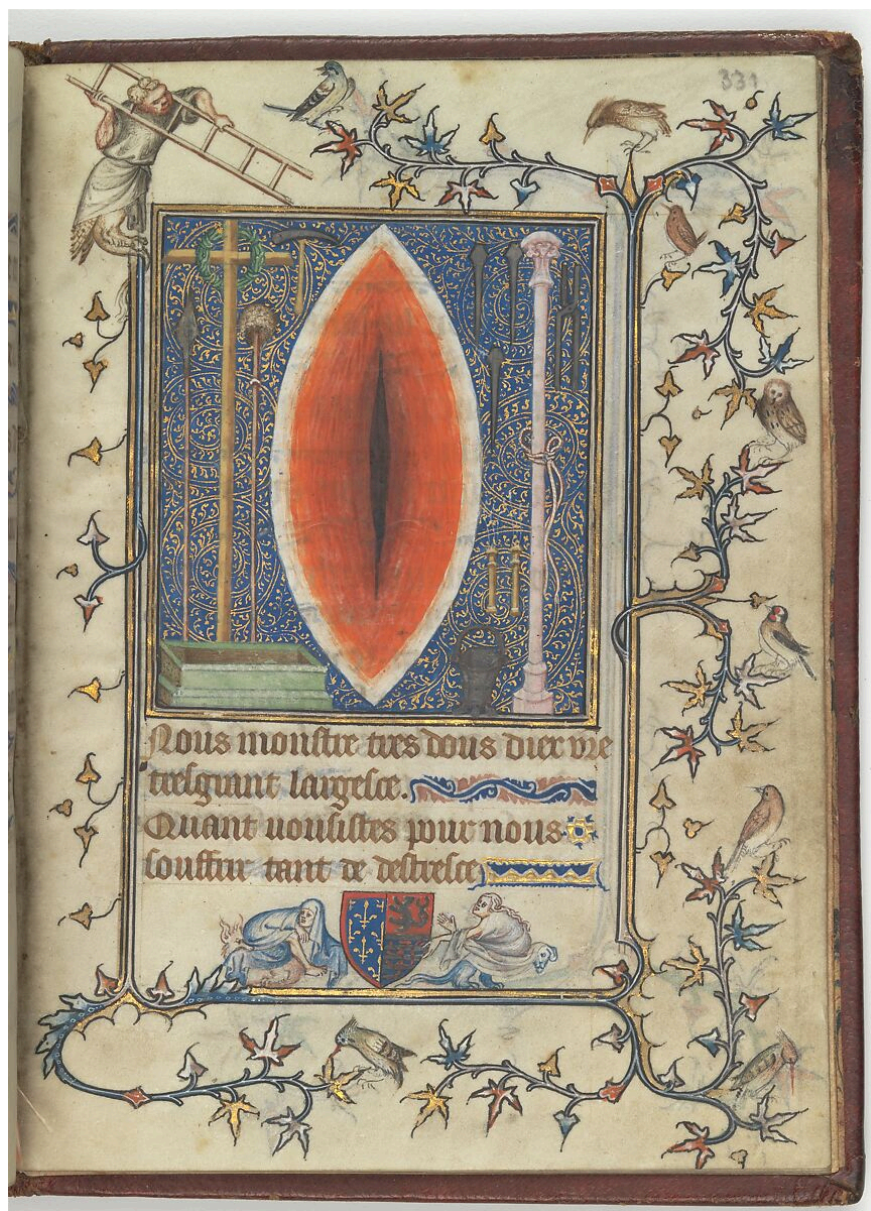 331
Nous monstre tres dous diex vre
tresgrant largesce.
Quant vousistes pour nous
souffrir tant de destresce